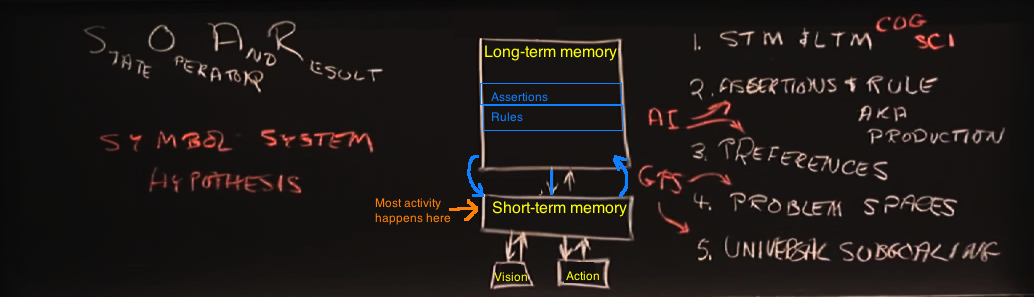 S O A R
TATE PERATOR ND ESULT
SYMBOL SYSTEM
HYPOTHESIS
Long-term memory
Assertions
Rules
Most activity
happens here
Short-term memory
Vision
Action
1. STM & LTM COG
SCI
2. ASSERTIONS & RULE
AKA
PRODUCTION
AI
3. PREFERENCES
GPS
4. PROBLEM SPACES
5. UNIVERSAL SUBGOALING